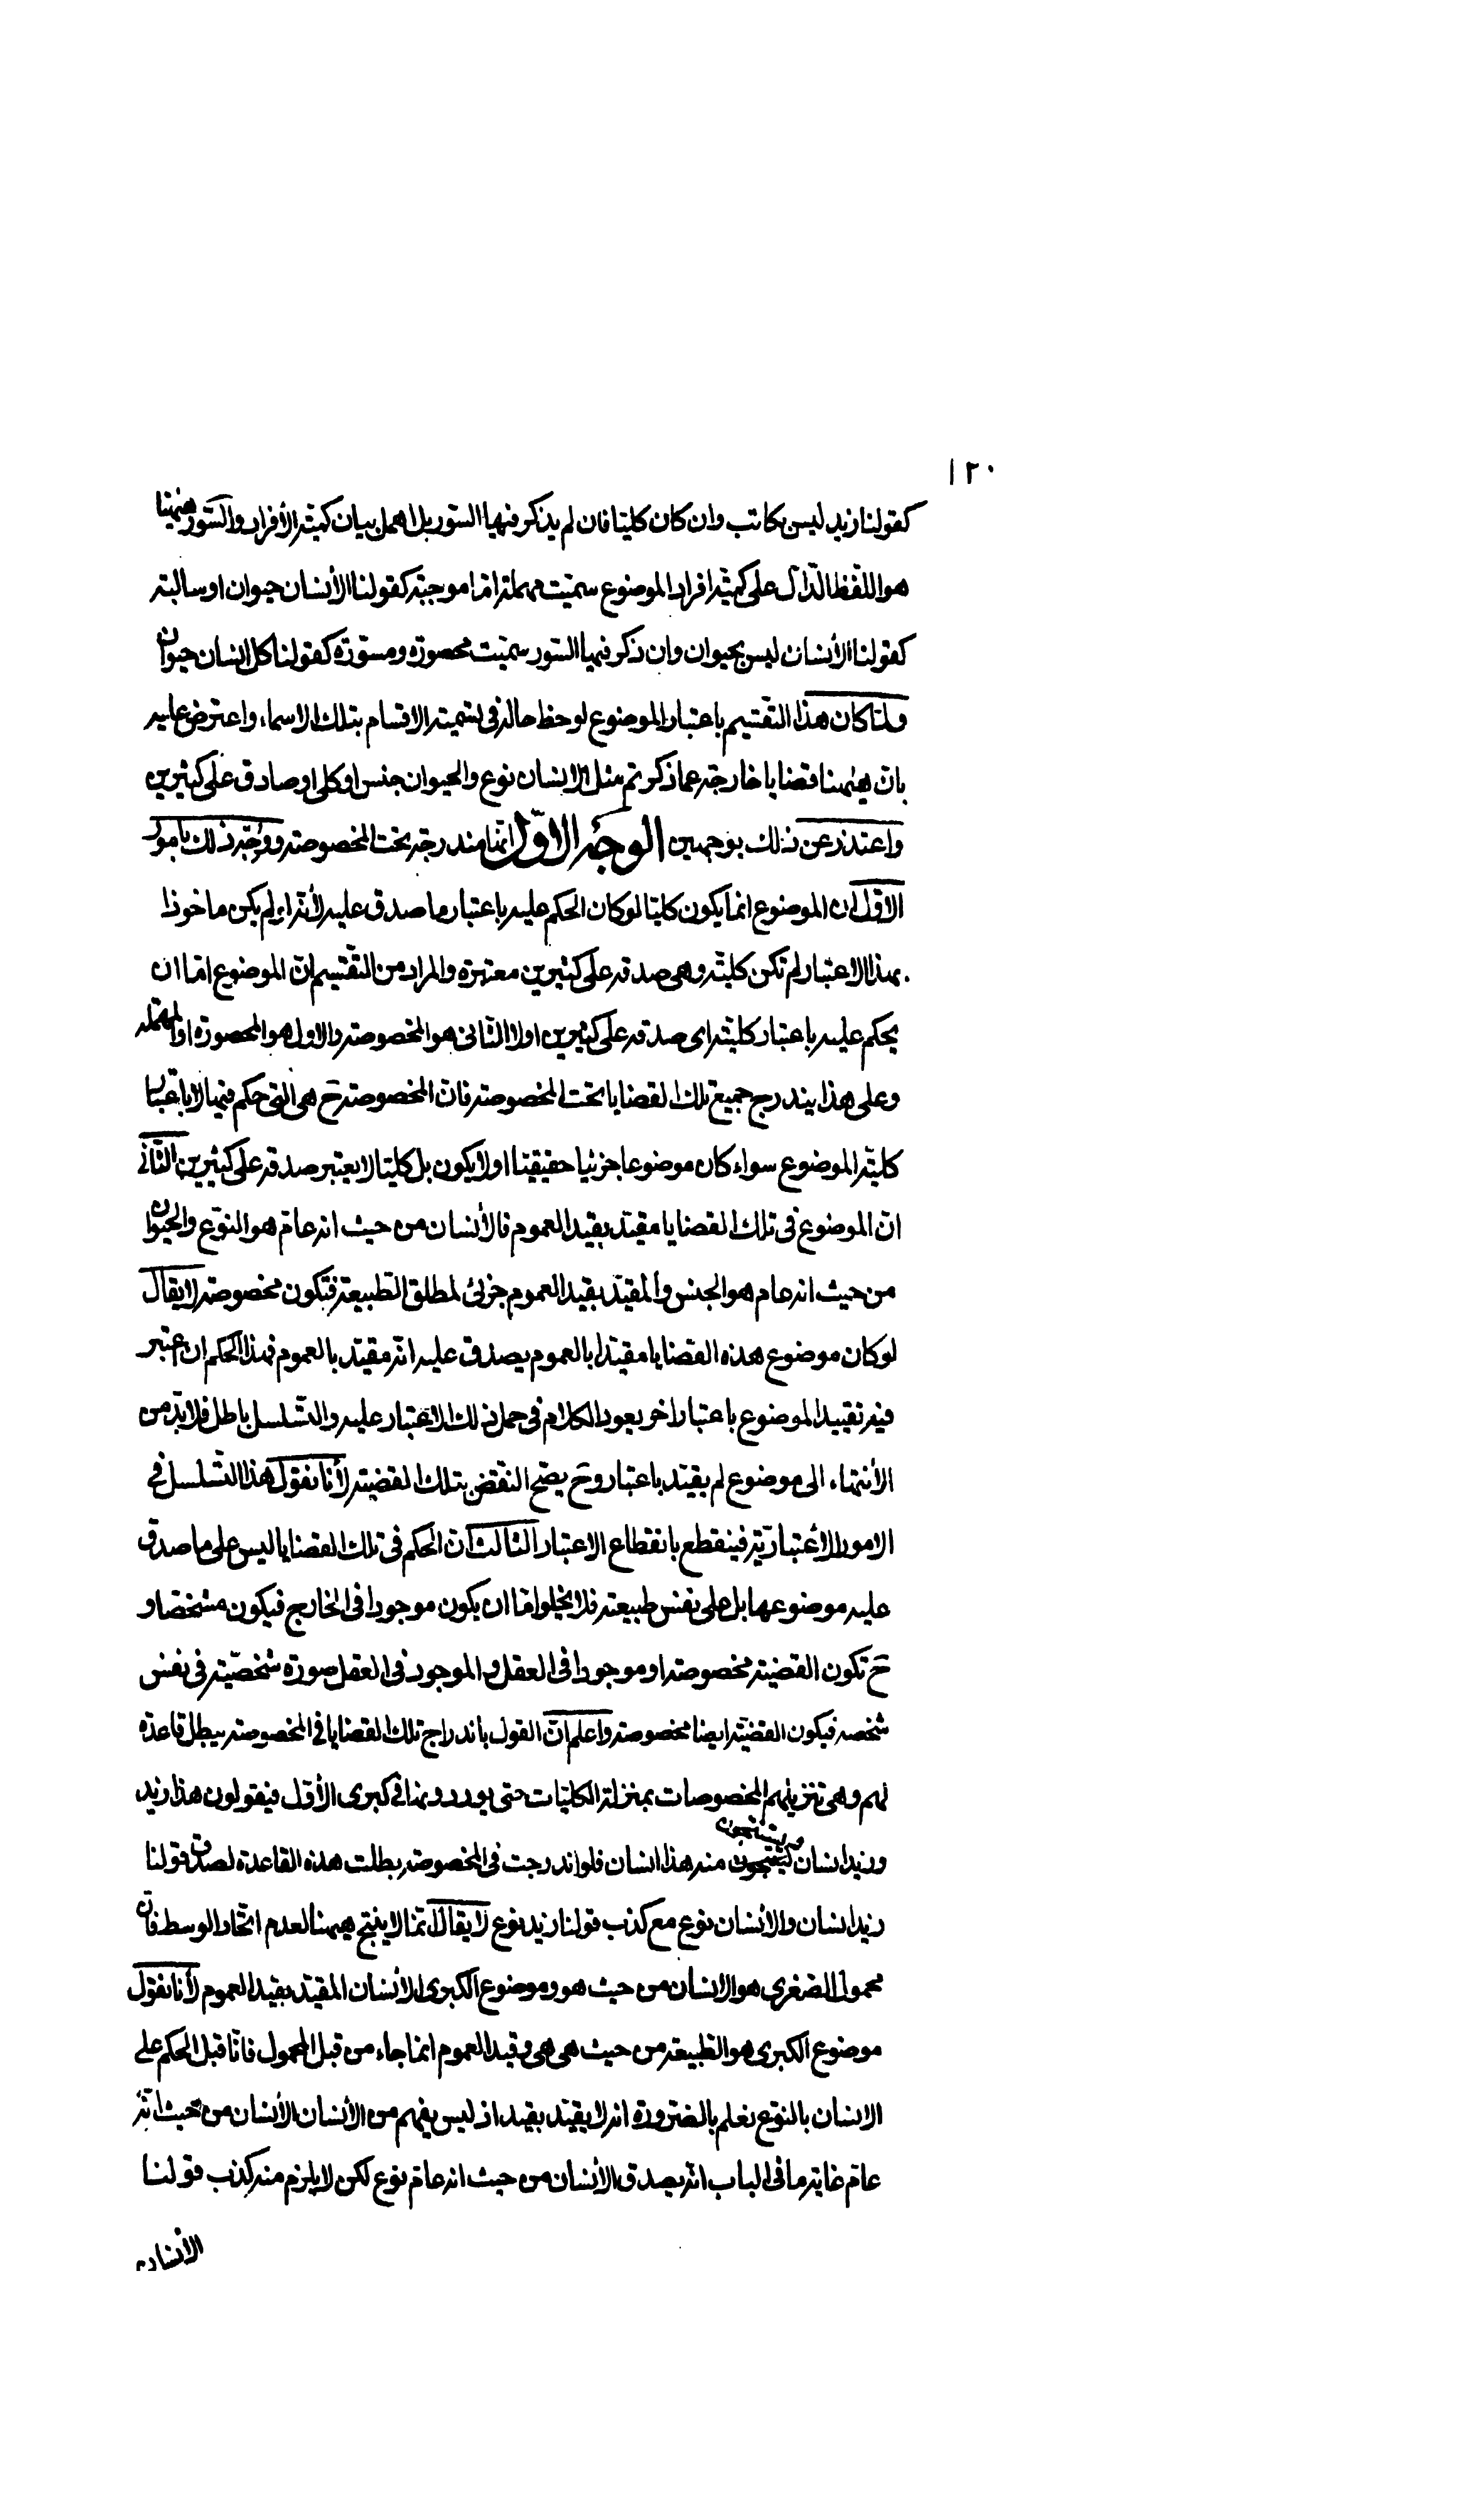 ١٢٠
كقولنا زيد ليس بكاتب وان كان كليّا فان لم يذكر فيها السّور بل اهمل بيان كميّة الأفراد والسّور ههنا
هو اللّفظ الدّالّ على كميّة افراد الموضوع سمّيت مهملة امّا موجبة كقولنا الأنسان حيوان او سالبة
كقولنا الأنسان ليس بحيوان وان ذكر فيها السّور سمّيت محصورة ومسوّرة كقولنا كل انسان حيوان
ولمّا كان هذا التّقسيم باعتبار الموضوع لوحظ حاله فى تسمية الاقسام بتلك الاسماء واعترض عليه
بانّ ههنا قضايا خارجة عما ذكرتم مثل الانسان نوع والحيوان جنس او كلى او صادق على كثيرين
واعتذر عن ذلك بوجهين الوجه الاوّل انّها مندرجة تحت المخصوصة ووُجّه ذلك بامور
الاوّل ان الموضوع انما يكون كليّا لو كان الحكم عليه باعتبار ما صدق عليه لأنّه لو لم يكن ماخوذا
بهذا الاعتبار لم تكن كليّته وهى صدقه على كثيرين معتبرة والمراد من التّقسيم انّ الموضوع امّا ان
يحكم عليه باعتبار كليّته اى صدقه على كثيرين او لا الثّانى هو المخصوصة والاول هو المحصورة او المهملة
وعلى هذا يندرج جميع تلك القضايا تحت المخصوصة فانّ المخصوصة ح هى التى حكم فيها لا باعتبار
كليّة الموضوع سواء كان موضوعها جزئيا حقيقيّا او لا يكون بل كليّا لا يعتبر صدقه على كثيرين الثّانى
انّ الموضوع فى تلك القضايا مقيّد بقيد العموم فالأنسان من حيث انه عامّ هو النّوع والحيوان
من حيث انه عام هو الجنس والمقيّد بقيد العموم جزئى لمطلق الطّبيعة فتكون مخصوصة لا يقال
لو كان موضوع هذه القضايا مقيّدا بالعموم يصدق عليه انّه مقيّد بالعموم فهذا الحكم ان اعتبر
فيه تقييد الموضوع باعتبار اخر يعود الكلام فى حمل ذلك الاعتبار عليه والتّسلسل باطل فلا بدّ من
الأنتهاء الى موضوع لم يقيّد باعتبار وح يصّح النّقض بتلك القضيّة لأنا نقول هذا التّسلسل فى
الامور الأعتباريّة فينقطع بانقطاع الاعتبار الثالث انّ الحكم فى تلك القضايا ليس على ما صدق
عليه موضوعها بل على نفس طبيعته فلا يخلو امّا ان يكون موجودا فى الخارج فيكون مشخّصا و
ح تكون القضيّة مخصوصة او موجودا فى العقل والموجود فى العقل صورة شخصيّة فى نفس
شخصه فيكون القضيّة ايضا مخصوصة واعلم انّ القول باندراج تلك القضايا فى المخصوصة يبطل قاعدة
لهم وهى تنزيلهم المخصوصات بمنزلة الكليّات حتى يوردونها فى كبرى الأوّل فيقولون هذا زيد
وزيد انسان فينتجون منه هذا انسان فلو اندرجت فى المخصوصة بطلت هذه القاعدة لصدق قولنا
زيد انسان والأنسان نوع مع كذب قولنا زيد نوع لا يقال انّما لا ينتج ههنا لعدم اتّحاد الوسط فانّ
محمول الصّغرى هو الانسان من حيث هو وموضوع الكبرى الأنسان المقيّد بقيد العموم لأنا نقول
موضوع الكبرى هو الطّبيعة من حيث هى هى وقيد العموم انما جاء من قبل المحمول فانّا قبل الحكم على
الانسان بالنّوع نعلم بالضّرورة انه لا يقيّد بقيد اذ ليس يفهم من الأنسان الأنسان من حيث انّه
عامّ غاية ما فى الباب انّه يصدق الأنسان من حيث انه عامّ نوع لكن لا يلزم منه كذب قولنا
الأنسان